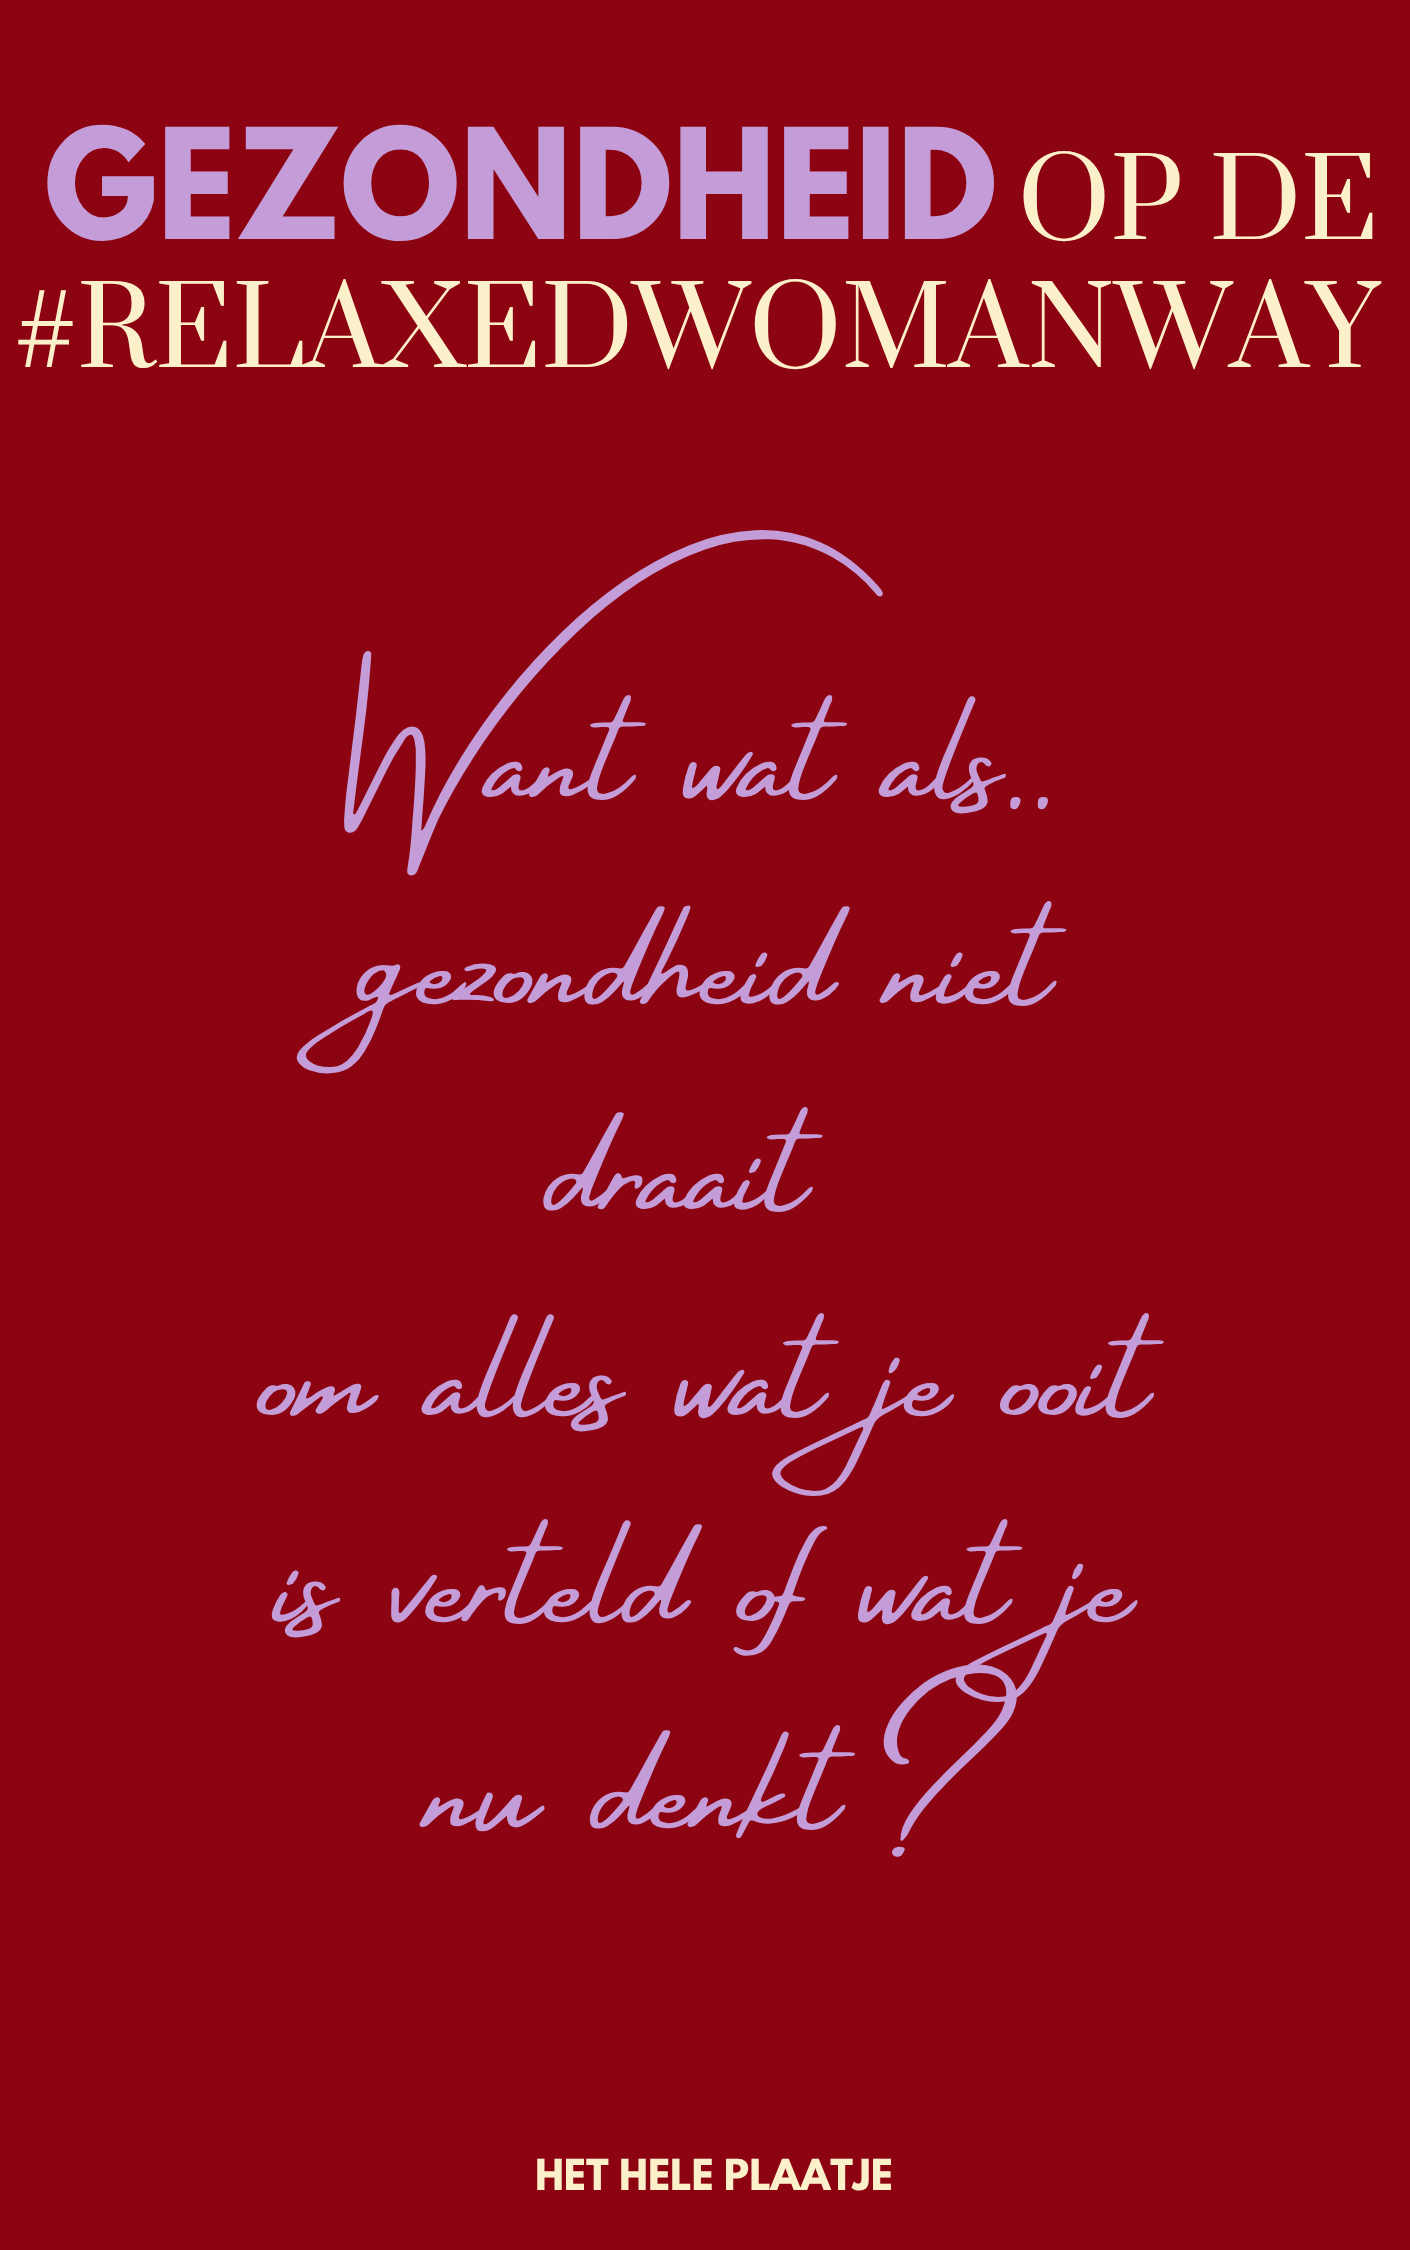 GEZONDHEID OP DE
#RELAXEDWOMANWAY
Want wat als..
gezondheid niet
draait
om alles wat je ooit
is verteld of wat je
nu denkt?
HET HELE PLAATJE